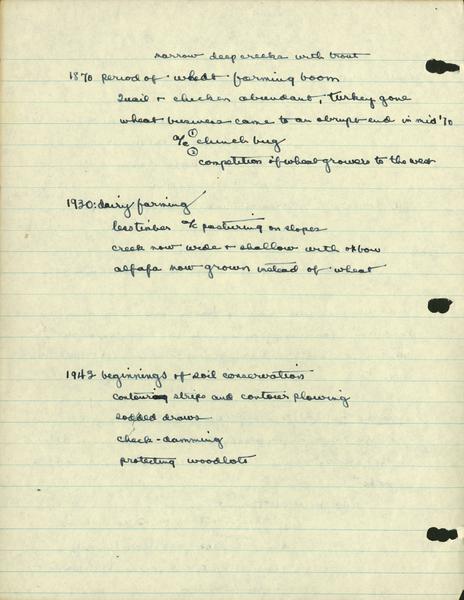 narrow deep creeks with trout
1870 period of wheat farming boom
Quail + chicken abundant, turkey gone
wheat business came to an abrupt end in mid '70
a/c ① chinch bug
② competition of wheat growers to the west
1930: dairy farming
less timber a/c pasturing on slopes
creek now wide + shallow with oxbow
alfafa now grown instead of wheat
1942 beginnings of soil conservation
contouring strips and contour plowing
sodded draws
check-damming
protecting woodlots